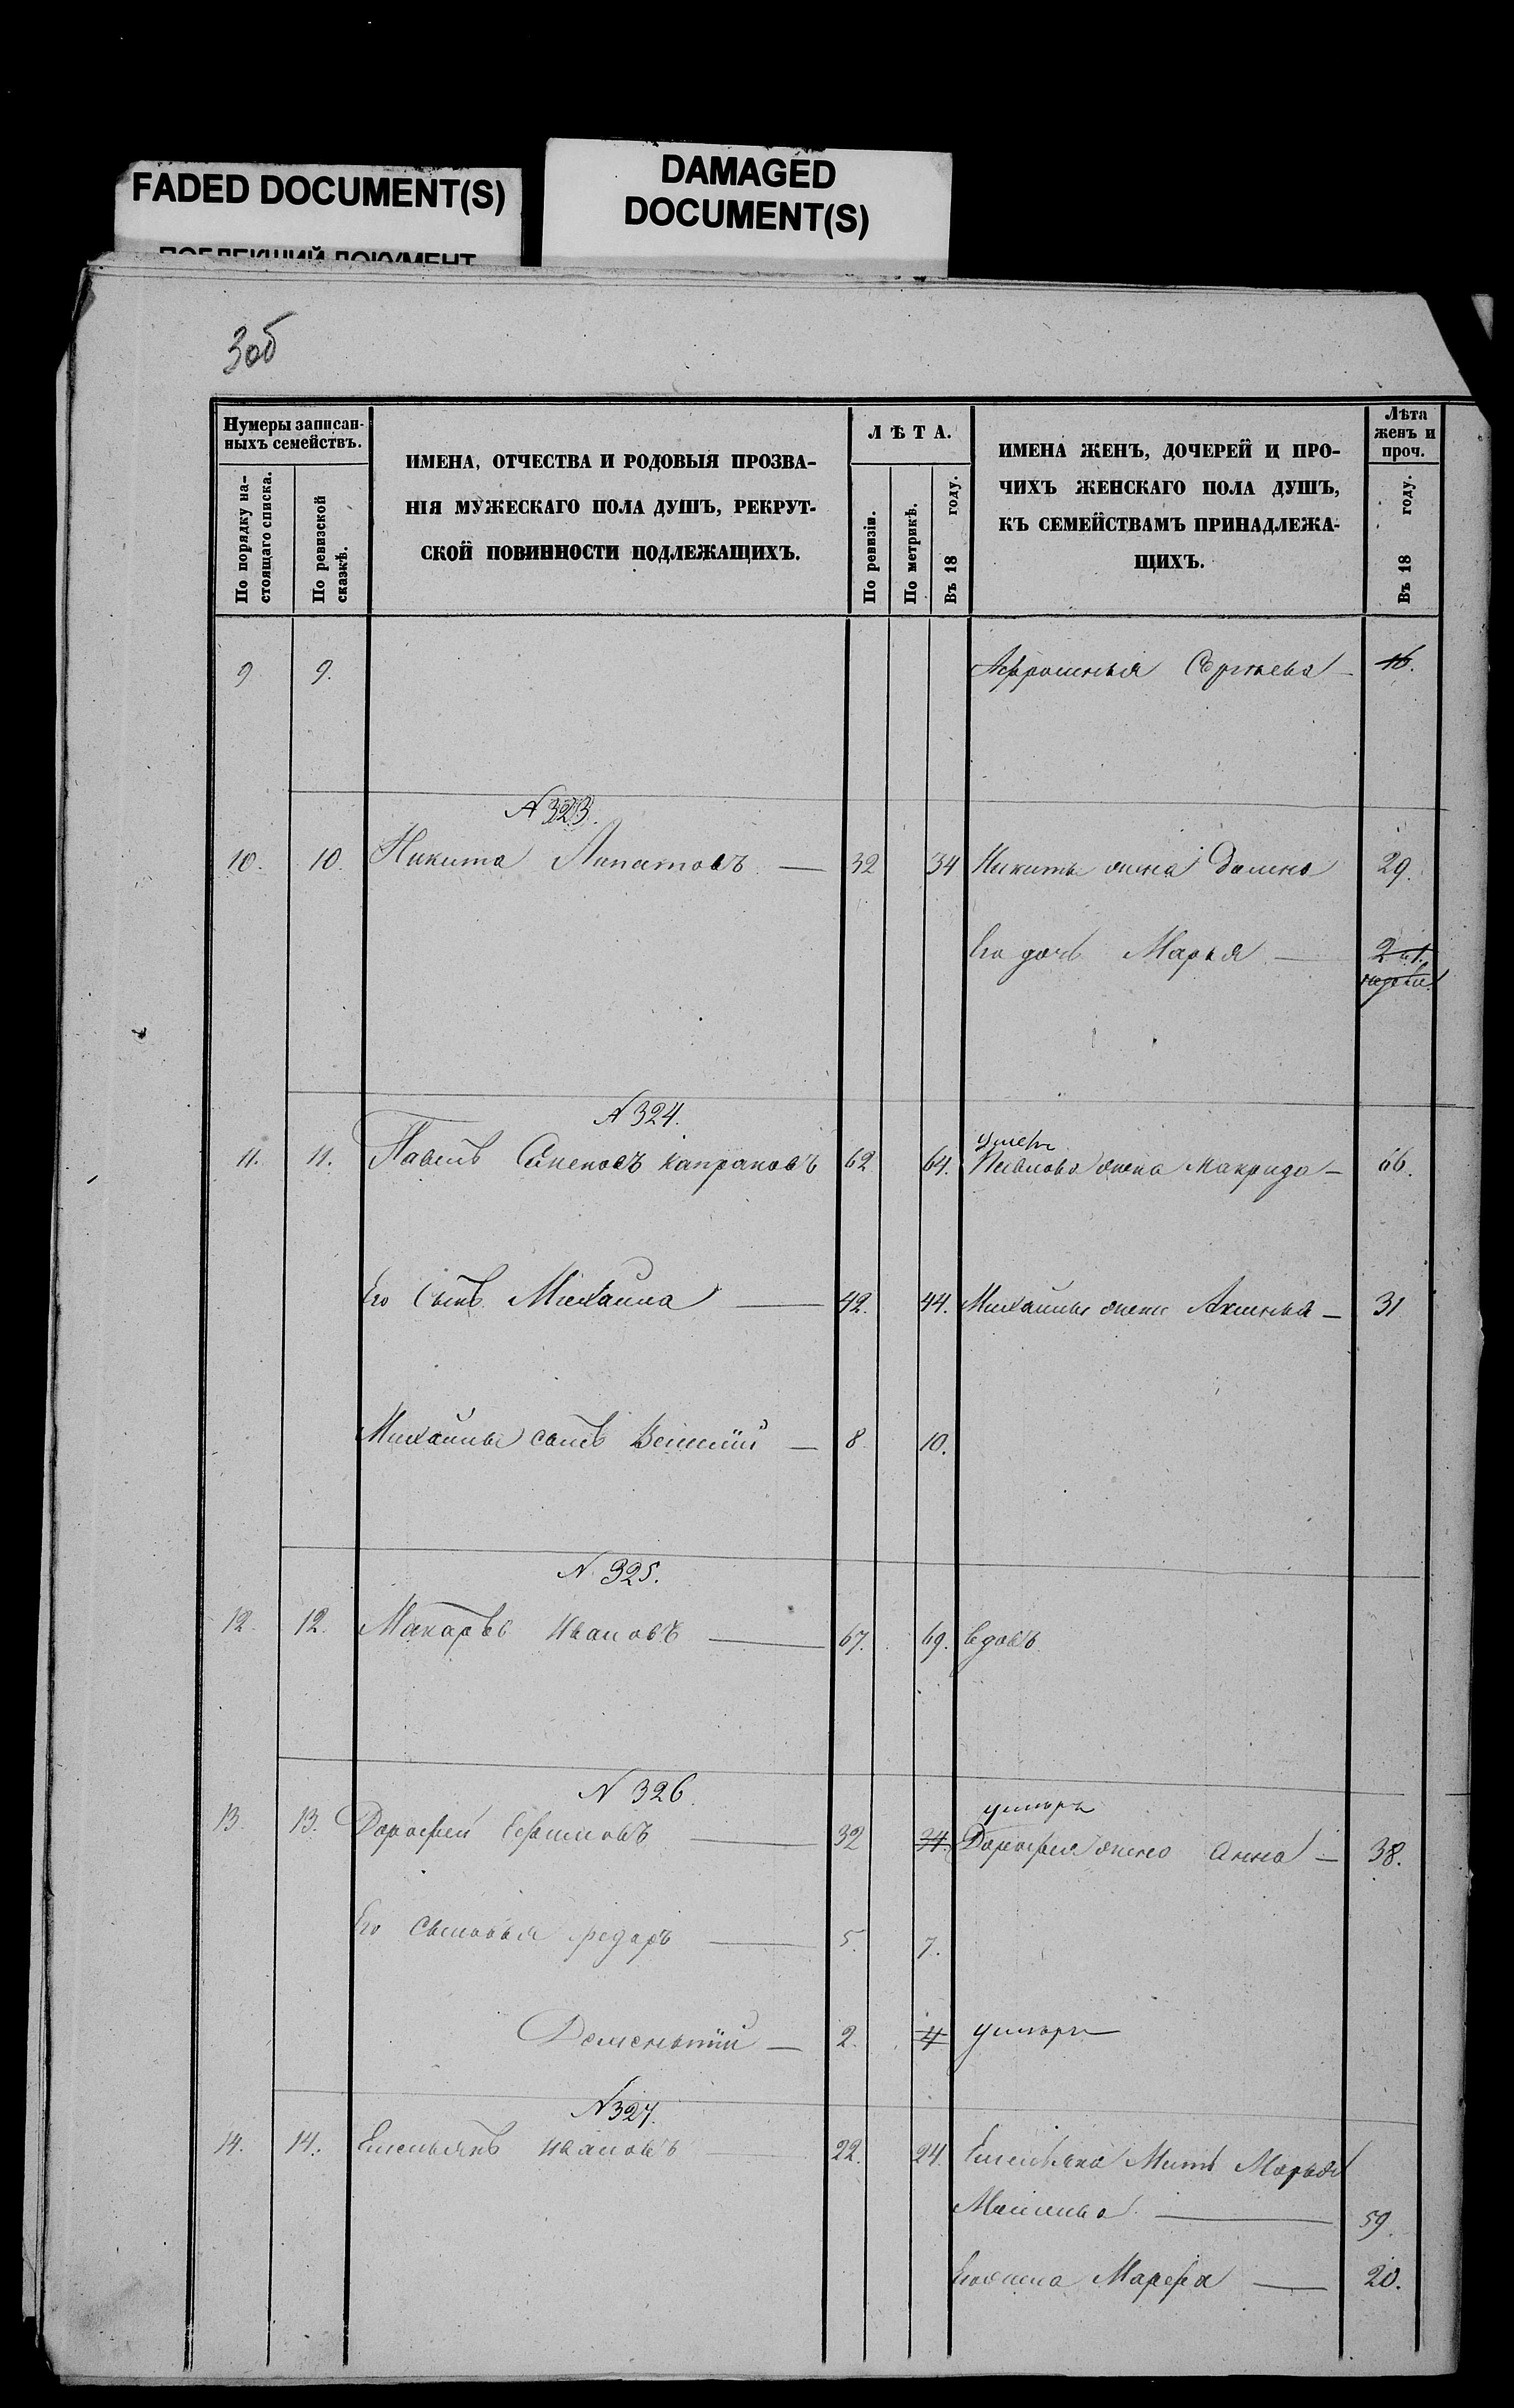 FADED DOCUMENT(S)
ПОБЛЕКШИЙ ДОКУМЕНТ
DAMAGED
DOCUMENT(S)
306
Нумеры записан-
ныхъ семействъ.
По порядку на-
стоящаго списка.
По ревизской
сказкѣ.
ИМЕНА, ОТЧЕСТВА И РОДОВЫЯ ПРОЗВА-
НІЯ МУЖЕСКАГО ПОЛА ДУШЪ, РЕКРУТ-
СКОЙ ПОВИННОСТИ ПОДЛЕЖАЩИХЪ.
ЛѢТА.
По ревизіи.
По метрикѣ.
Въ 18 году.
ИМЕНА ЖЕНЪ, ДОЧЕРЕЙ И ПРО-
ЧИХЪ ЖЕНСКАГО ПОЛА ДУШЪ,
КЪ СЕМЕЙСТВАМЪ ПРИНАДЛЕЖА-
ЩИХЪ.
Лѣта
женъ и
проч.
Въ 18 году.
9 9. Афросинья 16.
N 323.
10. 10. Никита Липатовъ — 32 34 Никиты жена Домна 29.
Его дочь Марья — 2
недели
N 324.
11. 11. Павелъ Капрановъ 62 64. Павлова жена Макрида — 66.
умер
Его Сынъ Михайла — 42. 44. Михайлы жена Аксинья — 31
Михайлы сынъ — 8 10.
N 325.
12. 12. Макаръ Ивановъ — 67. 69. вдовъ
N 326.
умеръ
13. 13. Дорофей — 32 34. Дорофея жена Анна — 38.
Его Сыновья Федоръ — 5. 7.
Дементий — 2. 4 умеръ
N 327.
14. 14. Емельянъ Ивановъ — 22. 24. Емельяна Мать Марья
— 59.
Его жена Марфа — 20.